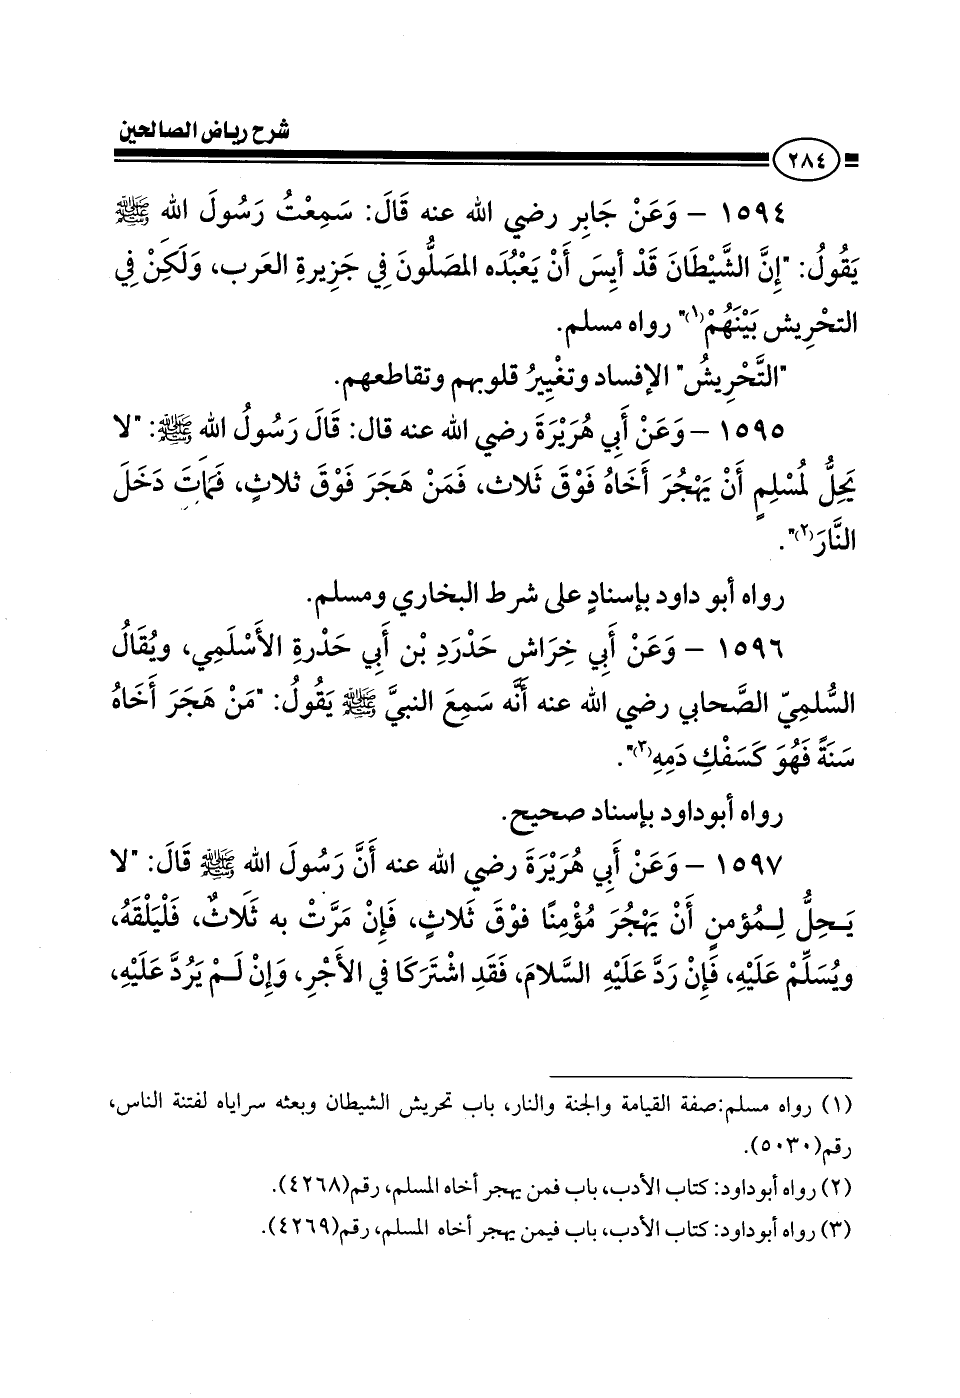 شرح رياض الصالحين
٢٨٤
١٥٩٤ – وَعَنْ جَابِر رضي الله عنه قَالَ: سَمِعْتُ رَسُولَ الله ﷺ
يَقُولُ: "إِنَّ الشَّيْطَانَ قَدْ أيِسَ أَنْ يَعْبُدَه المصَلُّونَ فِي جَزِيرةِ العَرب، وَلَكِنْ فِي
التحْرِيش بَيْنَهُمْ(١)" رواه مسلم.
"التَّحْرِيشُ" الإفساد وتغْيِيرُ قلوبهم وتقاطعهم.
١٥٩٥ – وَعَنْ أَبِي هُرَيْرَةَ رضي الله عنه قال: قَالَ رَسُولُ الله ﷺ: "لا
يَحِلُّ لمُسْلِمٍ أَنْ يَهْجُرَ أَخَاهُ فَوْقَ ثَلاث، فَمَنْ هَجَرَ فَوْقَ ثلاثٍ، فَمَاتَ دَخَلَ
النَّارَ(٢)".
رواه أبو داود بإسنادٍ على شرط البخاري ومسلم.
١٥٩٦ – وَعَنْ أَبِي خِرَاش حَدْرَدِ بْن أبي حَدْرةِ الأَسْلَمِي، ويُقَالُ
السُّلمِيّ الصَّحابي رضي الله عنه أنَّه سَمِعَ النبيَّ ﷺ يَقُولُ: "مَنْ هَجَرَ أَخَاهُ
سَنَةً فَهُوَ كَسَفْكِ دَمِهِ(٣)".
رواه أبوداود بإسناد صحيح.
١٥٩٧ – وَعَنْ أَبِي هُرَيْرَةَ رضي الله عنه أَنَّ رَسُولَ الله ﷺ قَالَ: "لا
يَـحِلُّ لِـمُؤمنٍ أَنْ يَهْجُرَ مُؤْمِنًا فوْقَ ثَلاثٍ، فَإِنْ مَرَّتْ به ثَلَاثٌ، فَلْيَلْقَهُ،
ويُسَلِّمْ عَلَيْهِ، فَإِنْ رَدَّ عَلَيْهِ السَّلامَ، فَقَدِ اشْتَرَكَا فِي الأَجْرِ، وَإِنْ لَـمْ يَرُدَّ عَلَيْهِ،
(١) رواه مسلم:صفة القيامة والجنة والنار، باب تحريش الشيطان وبعثه سراياه لفتنة الناس،
رقم(٥٠٣٠).
(٢) رواه أبوداود: كتاب الأدب، باب فمن يهجر أخاه المسلم، رقم(٤٢٦٨).
(٣) رواه أبوداود: كتاب الأدب، باب فيمن يهجر أخاه المسلم، رقم(٤٢٦٩).